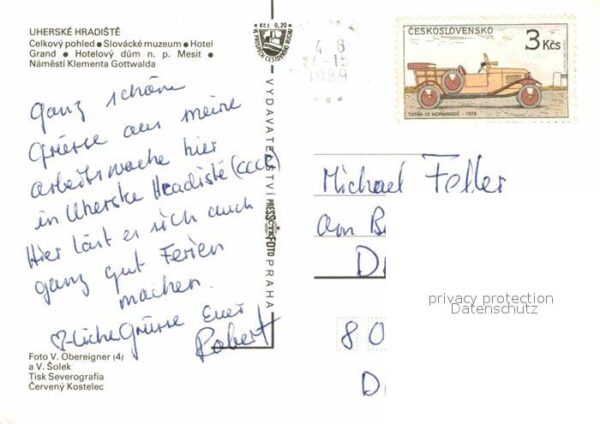 UHERSKÉ HRADIŠTĚ
Celkový pohled • Slovácké muzeum • Hotel
Grand • Hotelový dům n. p. Mesit •
Náměstí Klementa Gottwalda
Ganz schöne
Grüsse aus meine
Arbeitswoche hier
in Uherske Hradiště (CCCR)
Hier läst es sich auch
ganz gut Ferien
machen.
♡-liche Grüsse Euer
Robert
Foto V. Obereigner (4)
a V. Šolek
Tisk Severografia
Červený Kostelec
Kčs 0,20
VYDAVATELSTVÍ PRESSFOTO PRAHA
4 8
1989
ČESKOSLOVENSKO
3 Kčs
TATRA 12 NORMANDIE - 1929
Michael Feller
am B
D
8 0
D
privacy protection
Datenschutz